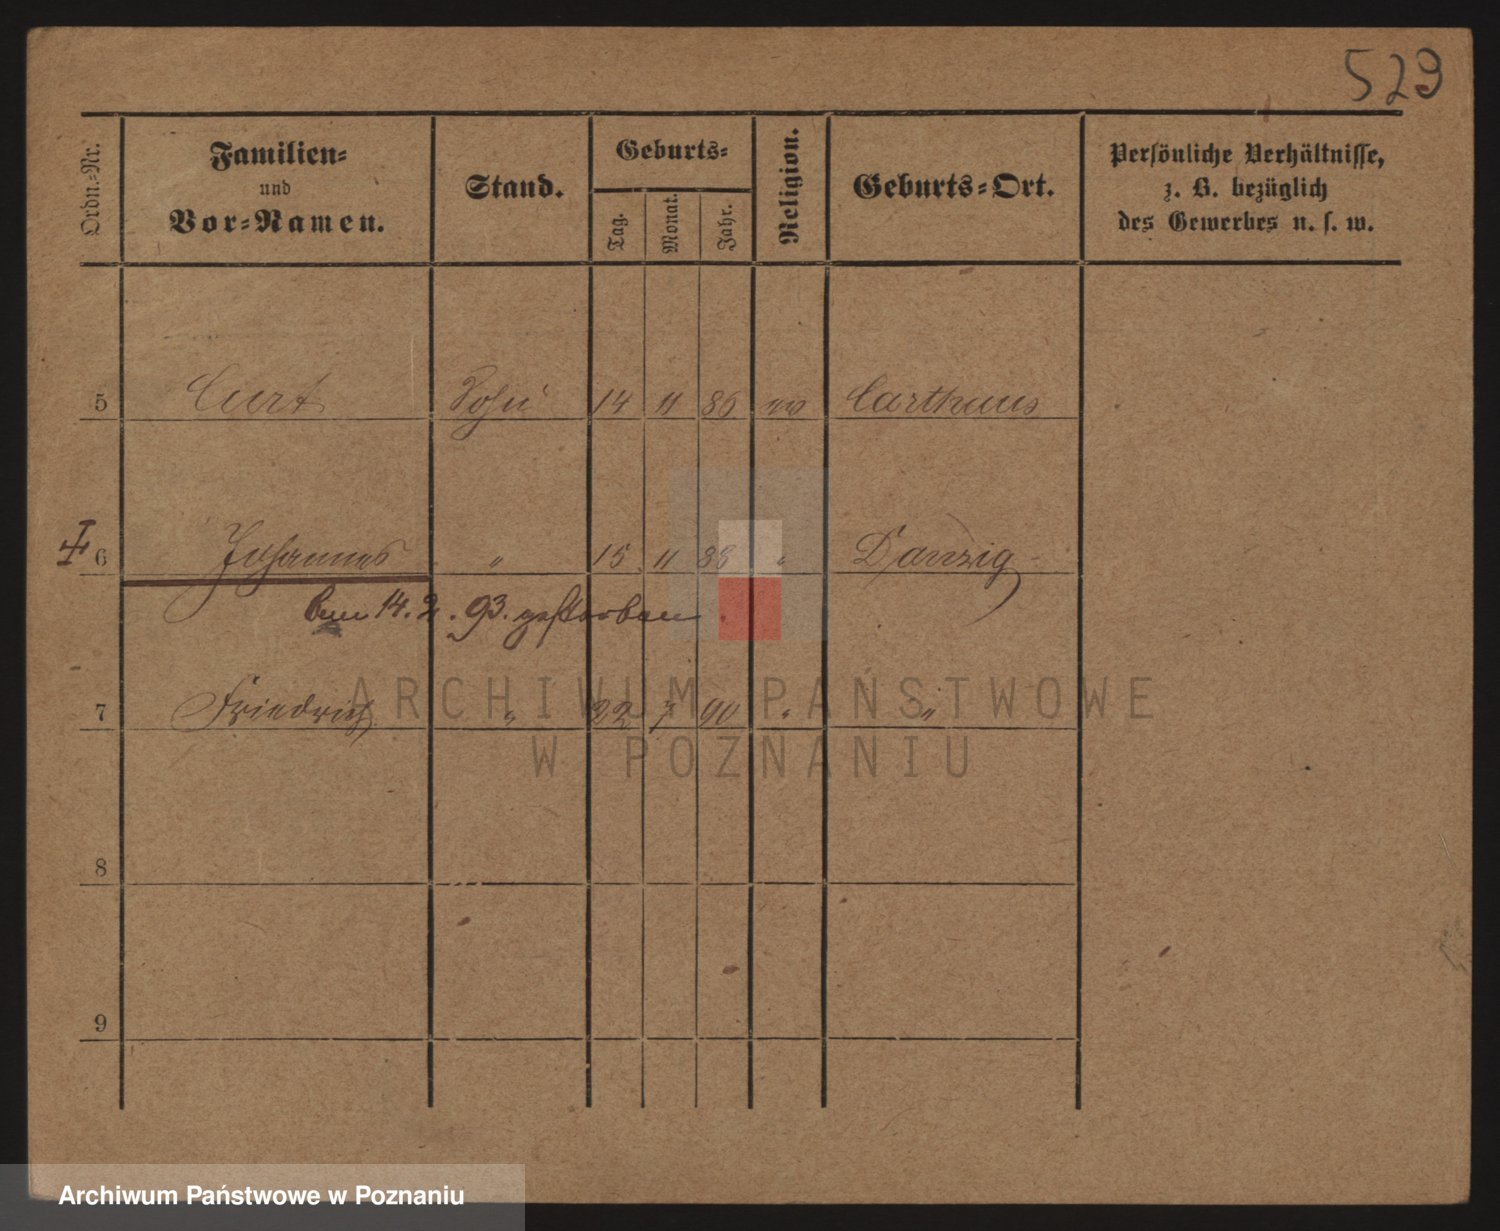 529
Ordn.-Nr. Familien- und Vor-Namen. Stand. Geburts- Tag. Monat. Jahr. Religion. Geburts-Ort. Persönliche Verhältnisse, z. B. bezüglich des Gewerbes u. s. w.
5 Curt Sohn 14 11 86 ev Carthaus
6 Johannes " 15 11 88 " Danzig
den 14. 2. 93. gestorben.
7 Friedrich " 22 7 90 " "
8
9
ARCHIWUM PAŃSTWOWE
W POZNANIU
Archiwum Państwowe w Poznaniu